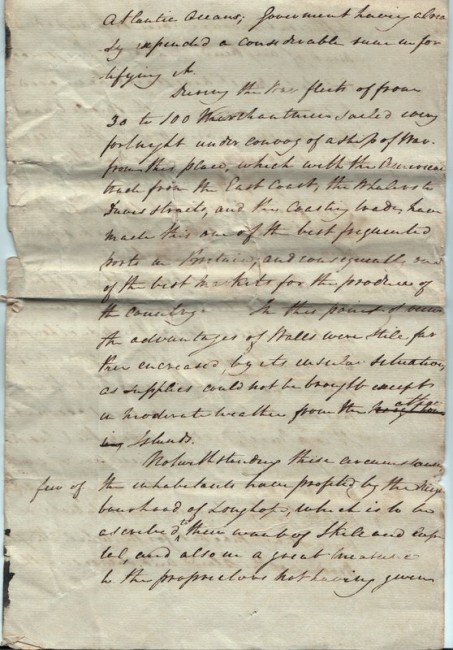 Atlantic Oceans; Goverment having alrea
dy expended a considerable sum in for
tifying it.
During the War fleets of from
30 to 100 Merchantmen sailed every
fortnight under convoy of a Ship of War
from this place, which with the American
trade from the East Coast, the Whalers to
Davis straits, and the Coasting trade, have
made this one of the best frequented
ports in Britain, and consequently one
of the best markets for the produce of
the country. In this point of view
the advantages of Walls were still far
ther encreased by its insular situation,
as supplies could not be brought except
in moderate weather from the other
Islands.
Notwithstanding these circumstances
few of the inhabitants have profited by the Neigh
bourhood of Longhope, which is to be
ascribed to their want of Skill and Capi
tal, and also in a great measure
to the proprietors not having given